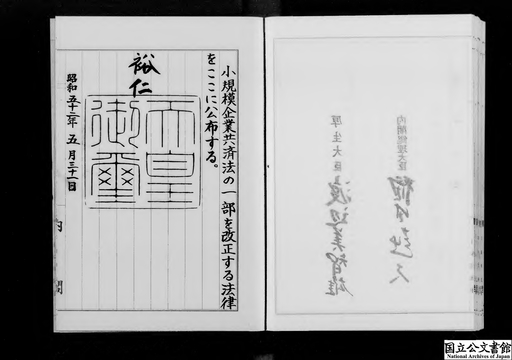 小規模企業共済法の一部を改正する法律
をここに公布する。
裕仁
天皇
御璽
昭和五十三年五月三十一日
内閣総理大臣
厚生大臣 渡辺美智雄
国立公文書館
National Archives of Japan